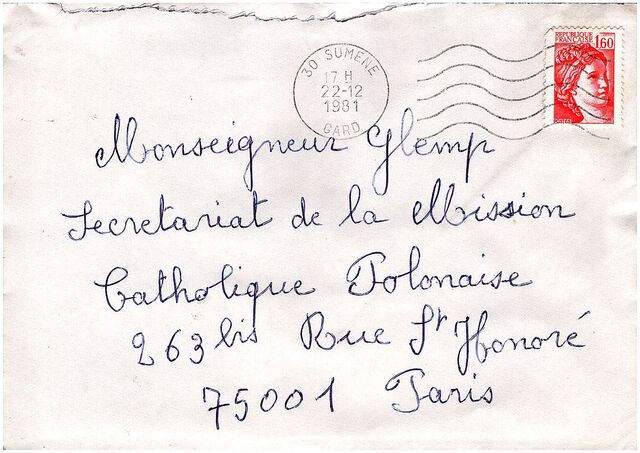 30 SUMENE
17 H
22-12
1981
GARD
REPUBLIQUE
FRANÇAISE
1,60
Monseigneur Glemp
Secretariat de la Mission
Catholique Polonaise
263 bis Rue St Honoré
75001 Paris